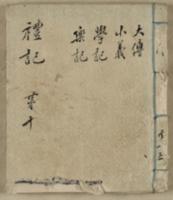 大傳
小義
學記
樂記
禮記 第十